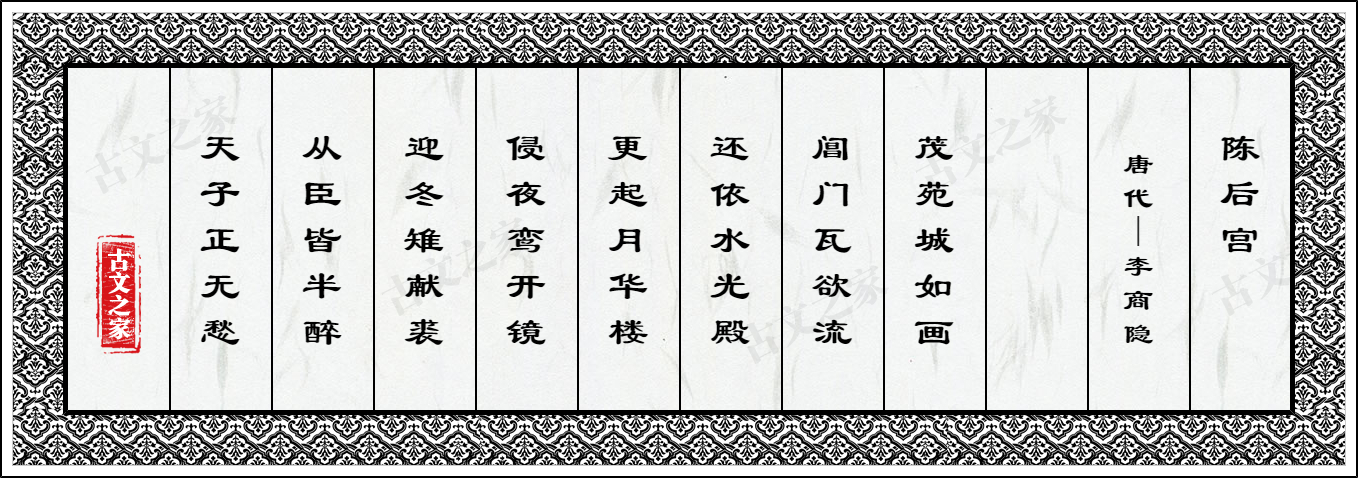 陈后宫
唐代—李商隐
茂苑城如画
阊门瓦欲流
还依水光殿
更起月华楼
侵夜鸾开镜
迎冬雉献裘
从臣皆半醉
天子正无愁
古文之家